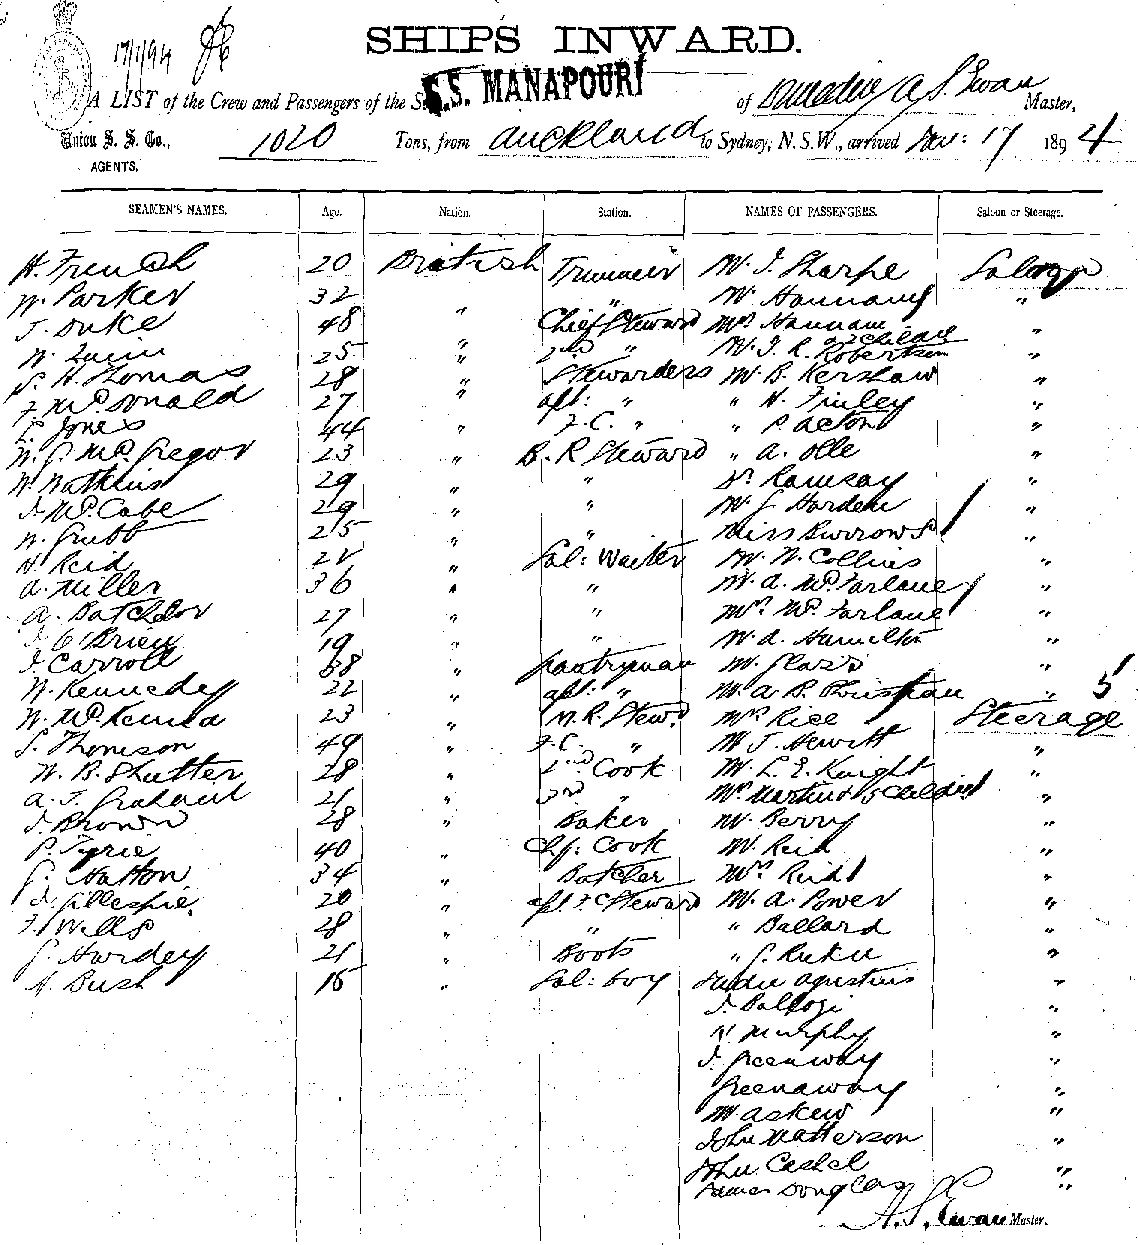 17/1/94
SHIPS INWARD.
A LIST of the Crew and Passengers of the S.S. MANAPOURI of Dunedin A S. Ewan Master,
Union S. S. Co., 1020 Tons, from Auckland to Sydney, N.S.W., arrived Jan: 17 1894
AGENTS.
SEAMEN'S NAMES. Age. Nation. Station. NAMES OF PASSENGERS. Saloon or Steerage.
H. French 20 British Trimmer Mr J. Sharpe Saloon
W. Parker 32 " " Mr Hannam "
J. Duke 48 " Chief Steward Mrs Hannam "
W. Quinn 25 " 2nd " Mr J. R. Robertson "
H. Thomas 28 " Stewardess Mr B. Kershaw "
F McDonald 27 " " " H. Finley "
L. Jones 44 " F.C. " " P Acton "
W. G McGregor 23 " B. R Steward " A. Olle "
W. Watkins 29 " " Dr Ramsay "
J. McCabe 29 " " Mr J Harden "
W. Grubb 25 " " Miss Burrows "
H Reid 22 " Sal: Waiter Mr W. Collins "
A. Miller 36 " " Mr A. McFarlane "
A. Batchelor 27 " " Mrs McFarlane "
J O'Brien 19 " " W. A. Hamilton "
J Carroll 58 " Pantryman Mr "
W. Kennedy 22 " " Mr A. B. " 5
W. McKenna 23 " M.R. Stewd Mrs Rice Steerage
S. Thomson 49 " F.C. " Mr J. Hewitt "
W. B. Shutter 28 " 2nd Cook Mr L. E. Knight "
A. J. Graham 21 " 3rd " Mrs Martin & 5 Children "
J. Brown 28 " Baker Mr Berry "
P. Tyrie 40 " Chf: Cook Mr Reid "
G. Hatton 34 " Butcher Mrs Reid "
J. Gillespie 20 " F.C Steward Mr A. Power "
F. Wells 28 " " " Ballard "
G. Hardey 21 " Boots " "
A. Bush 15 " Sal: boy "
J. "
W Murphy "
J. Greenway "
Greenaway "
Mr Askew "
John Matterson "
John Cashel "
James Douglas "
A. S. Ewan Master.